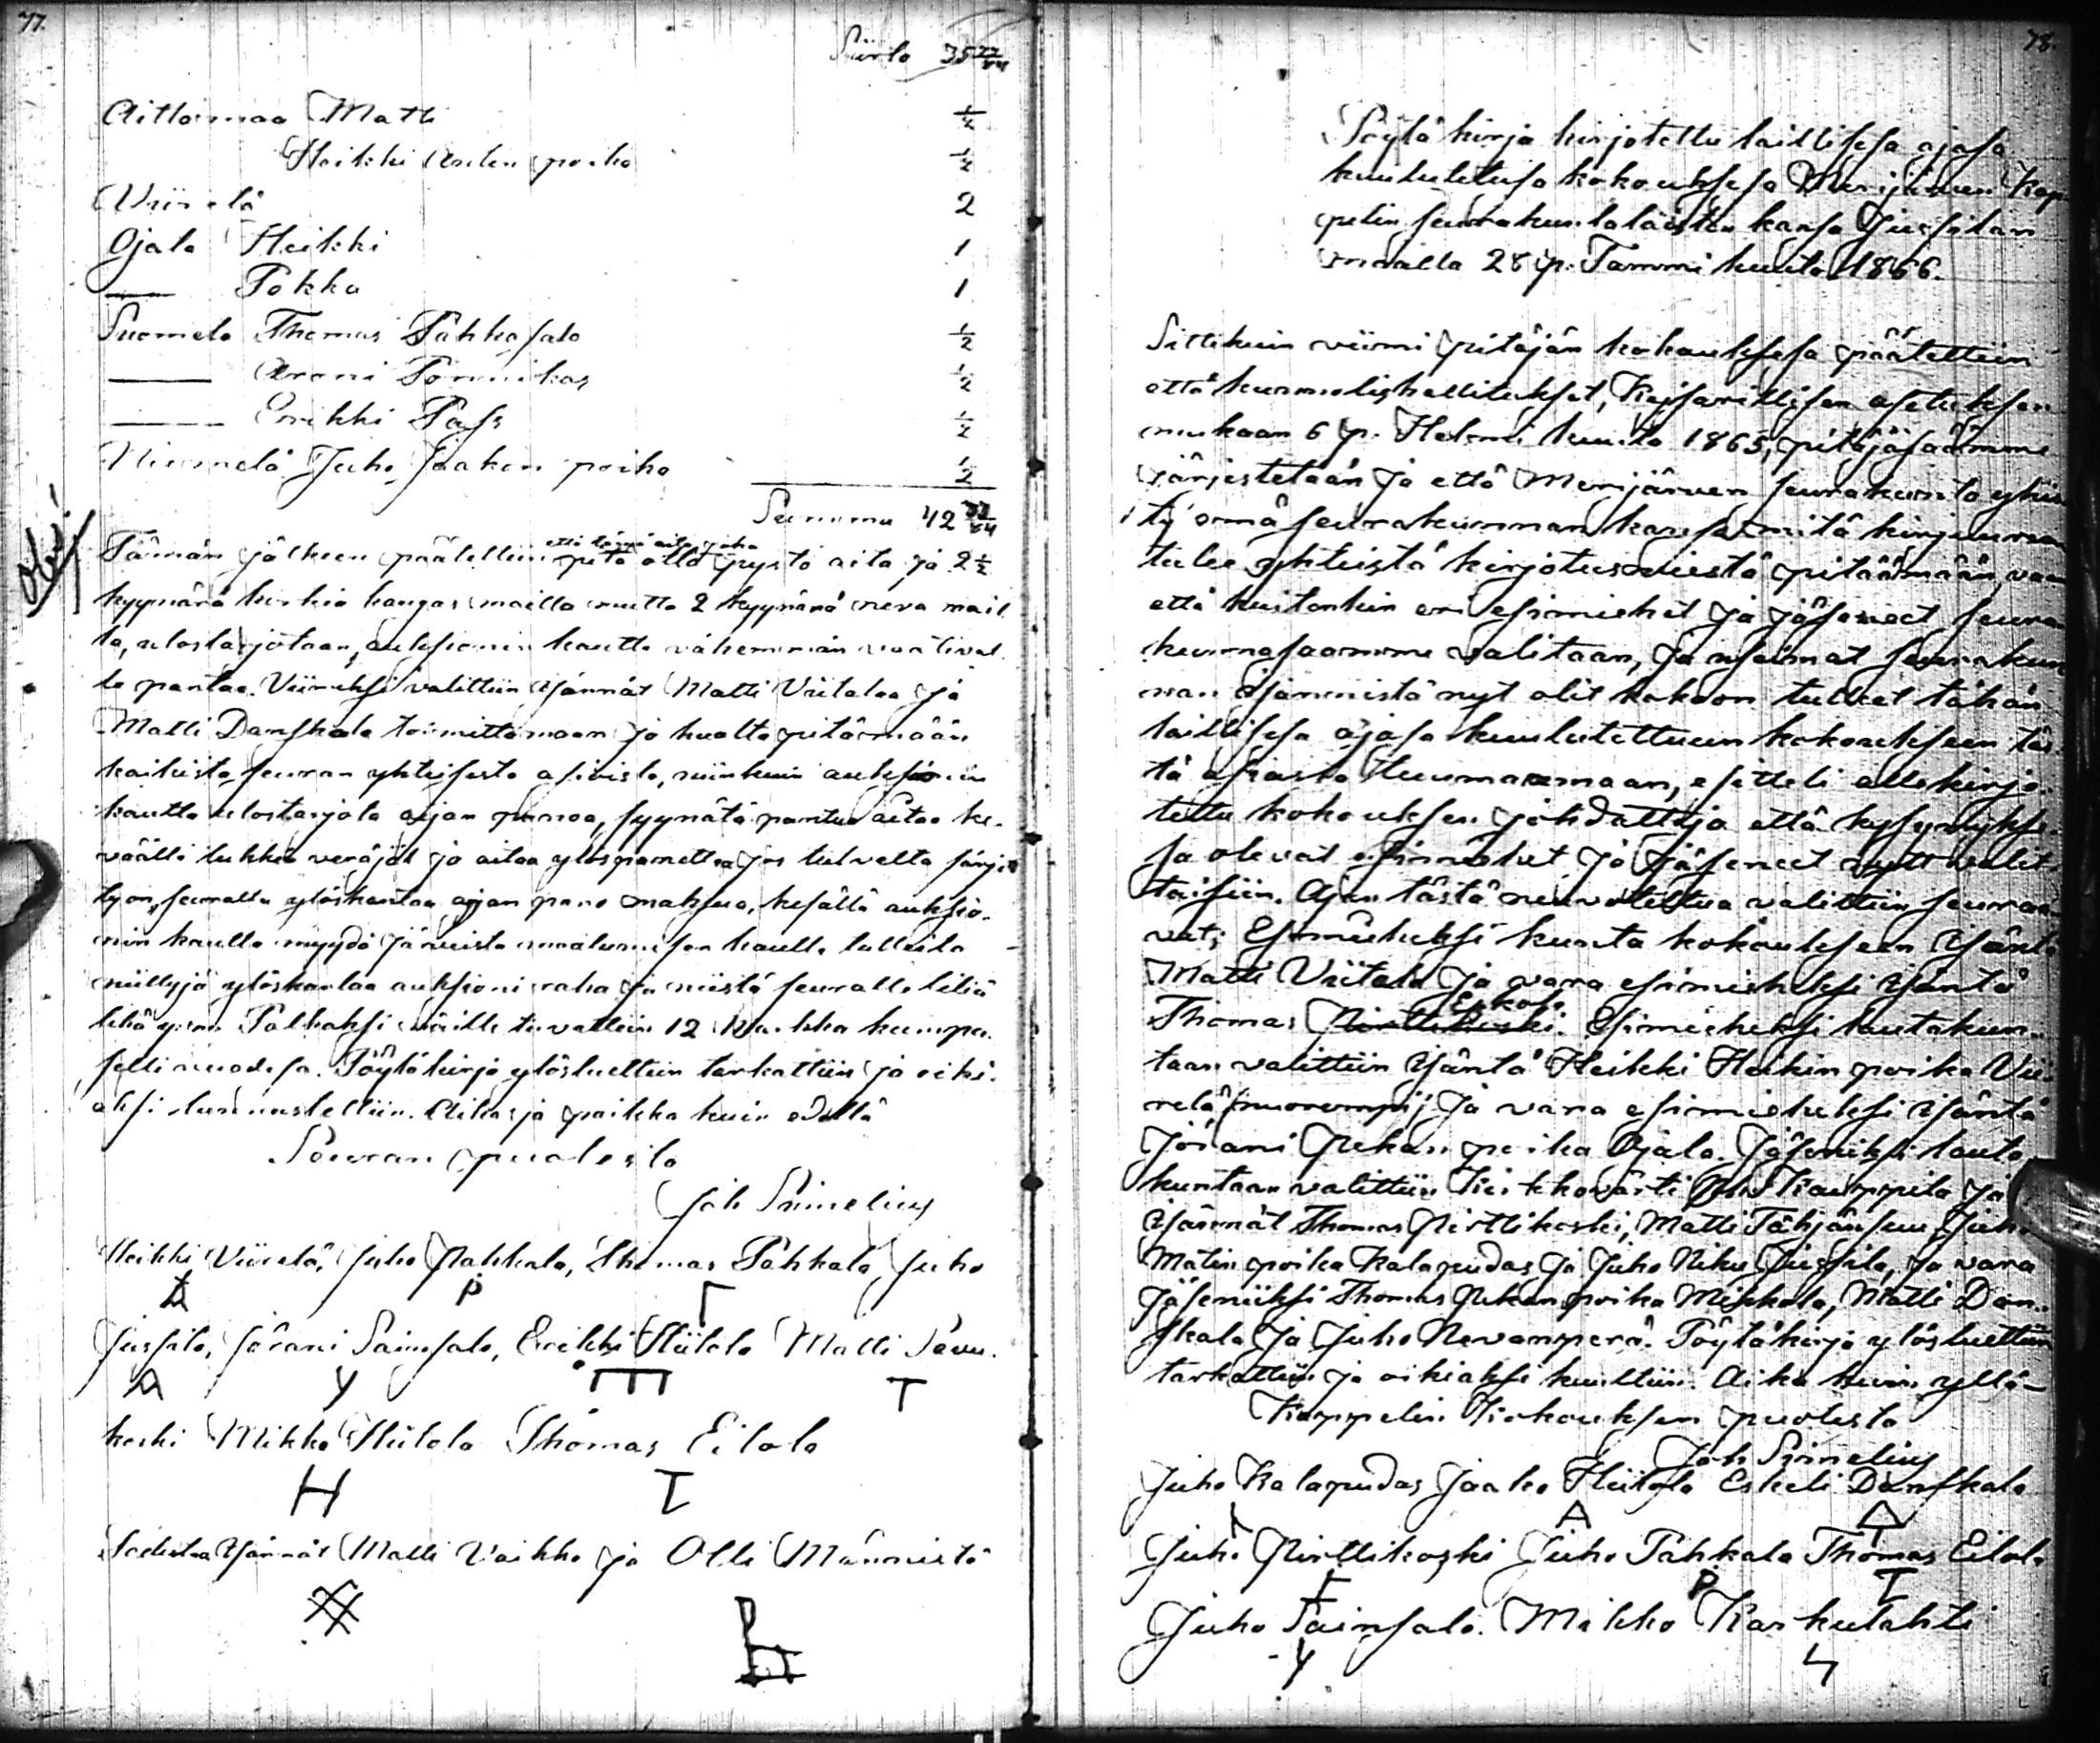 77.
Siirto 35 27/64
Aittomaa Matti 1/4
Heikki Antin poika 1/4
Viirelä 2
Ojala Heikki 1
— Pokka 1
Suomela Thomas Pähkäsalo 1/2
— Örani 1/2
— Errikki Pass 1/2
Niemelä Juho Jaakon poika 1/2
Summa 42 /64
Olej!
että tämä aita
Tämän jälkeen päätettiin pitä olla pysty aita ja 2 1/2
kyynärä korkia kangas mailla mutta 2 kyynärä neva mail
la, ulostarjotaan, auksionin kautta vähemmän vaatival
le pantaa. Viireksi valittiin Isännät Matti Viitala ja
Matti Danskala toimittamaan ja huolta pitämään
kaikista seuran yhteisestä asioista, niinkuin auksionin
kautta ulostarjota ajan panoa, syynätä pantua aitaa ke-
väällä tukkia veräjät ja aitaa ylöspanettaa jos tulvalta särje
tyon, seuralta ylöskantaa ajan pano maksua, kesällä auksio-
nin kautta myydä Järvestä kautta tulleita
niittyjä ylöskantaa auksioni raha ja niistä seuralle tiliä
tehdä Palkaksi näille luvattiin 12 Markka kumpa-
selli vuodesa. Pöytäkirja ylösluettiin tarkattiin ja oiki-
aksi tunnustettiin. Aika ja paikka kuin edellä
Seuran puolesta
Joh Snimelius
Heikki Viirelä, Juho Pahkala, Thomas Pahkala, Juho
Jussila, Jörani Sainsalo, Errikki Hiitola Matti Savu-
koski Mikko Hiitola Thomas Eilola
Todistaa Isännät Matti Vaikko ja Olli Männistö
78.
Pöytäkirja kirjotettu laillisesa ajasa
kuulutetusa kokouksesa Merijärven Kap
pelin seurakuntalaisten kansa Jussilan
maalla 28 p. Tammi kuuta 1866.
Sittekuin viimi pitäjän kokouksesa päätettiin
että kunnolishallitukset, Keisarillisen asetuksen
mukaan 6 p. Helmi kuuta 1865, pitäjäsämme
järjestetään ja että Merijärven seurakunta yhis
ty emä seurakunnan kansa mitä kirjuuraan
tulee yhteistä kirjotusmiestä pitäämään, vaan
että kuitenkin eri esimiehet ja jäsenet seura
kunnasaamme valitaan, ja usiamat seurakun
nan Isännistä nyt olit kokoon tullet tähän
laillisesa ajasa kuulutettuun kokoukseen täs-
tä asiasta tuumaamaan, esitteli allekirjo-
tettu kokouksen johdattaja että kysymykse-
sa olevat esimiehet ja jäsenet nytt valit
taisiin. Asian tästä neuvoteltua valittiin seuraa
vat; Esimieheksi kunta kokoukseen Isäntä
Matti Viitala ja vara esimieheksi Isäntä
Eskola
Thomas Pirttikoski. Esimieheksi lautakun-
taan valittiin Isäntä Heikki Heikin poika Vii-
relä nuorempi ja vara esimieheksi Isäntä
Jörani Pekan poika Ojala. Jäseniksi lauta
kuntaan valittiin Kirkkovärti Juho Kauppila ja
Isännät Thomas Pirttikoski, Matti Tähjänsuu, Juho
Matin poika Kalapudas ja Juho Niku Jussila, ja vara
Jäseniiksi Thomas Pekan poika Mikkola, Matti Dan-
skala ja Juho Nevanperä. Pöytäkirja ylösluettiin
tarkattiin ja oikiaksi kuultiin. Aika kuin yllä-
Kappelin Kokouksen puolesta
Joh Snimelius
Juho Kalapudas Jaako Hiitola Eskeli Danskala
Juho Pirttikoski Juho Pahkala Thomas Eilola
Juho Sainsalo. Mikko Karkulahti